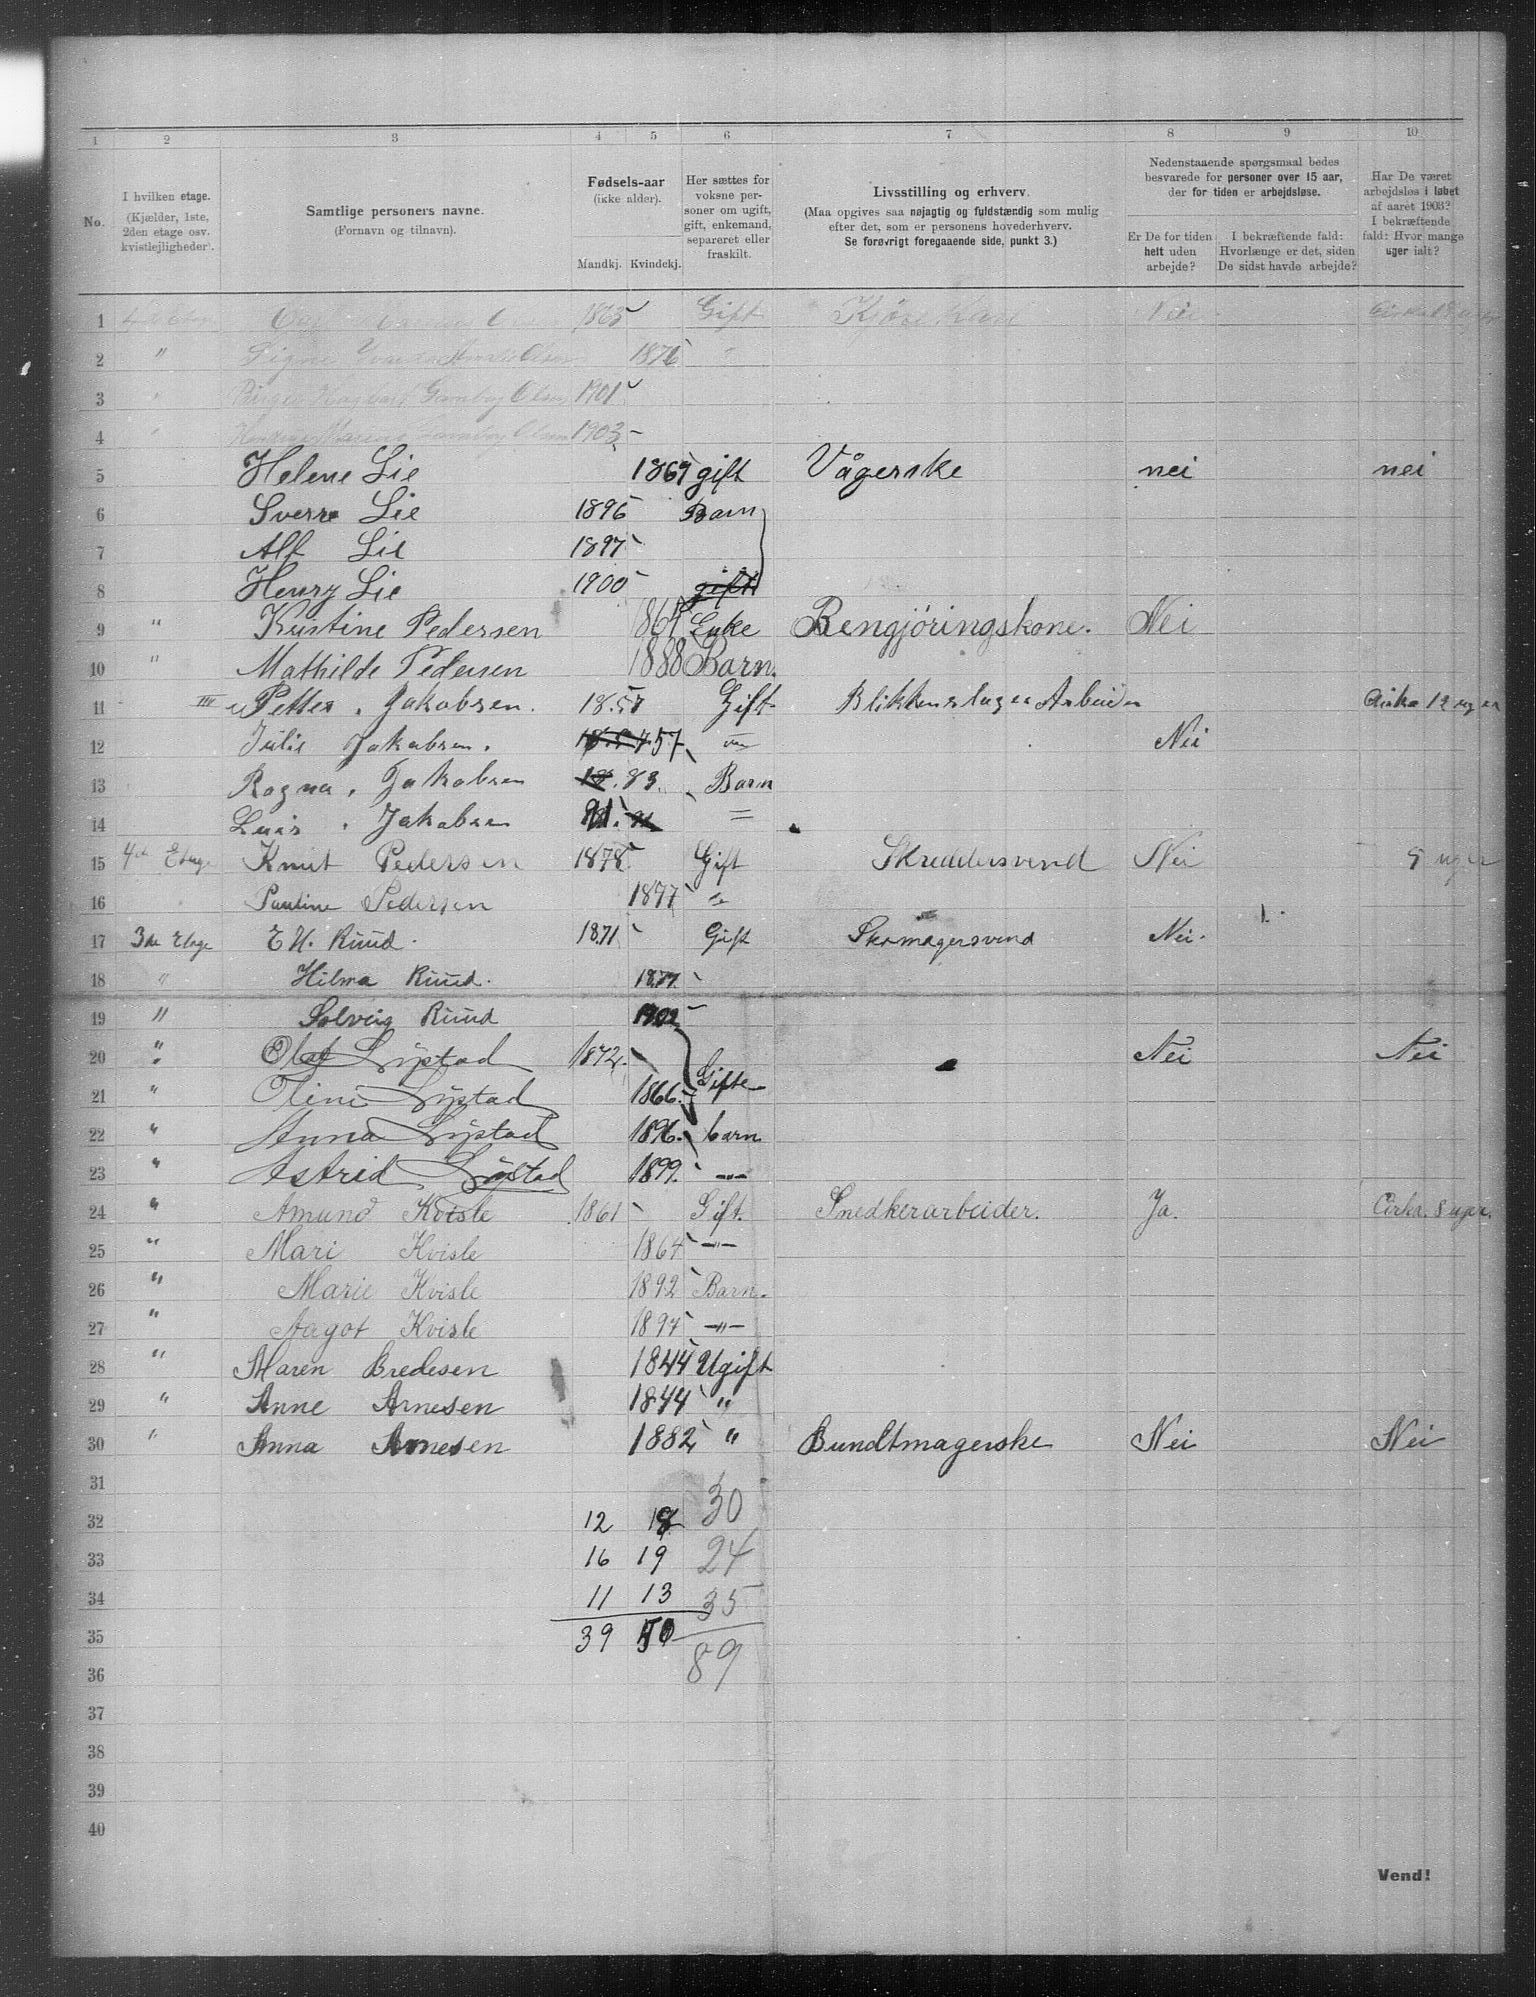 1 2 3 4 5 6 7 8 9 10
No.
I hvilken etage.
(Kjælder, 1ste,
2den etage osv.
kvistlejligheder).
Samtlige personers navne.
(Fornavn og tilnavn).
Fødsels-aar
(ikke alder).
Mandkj. Kvindekj.
Her sættes for
voksne per-
soner om ugift,
gift, enkemand,
separeret eller
fraskilt.
Livsstilling og erhverv.
(Maa opgives saa nøjagtig og fuldstændig som mulig
efter det, som er personens hovederhverv.
Se forøvrigt foregaaende side, punkt 3.)
Nedenstaaende spørgsmaal bedes
besvarede for personer over 15 aar,
der for tiden er arbejdsløse.
Er De for tiden
helt uden
arbejde?
I bekræftende fald:
Hvorlænge er det, siden
De sidst havde arbejde?
Har De været
arbejdsløs i løbet
af aaret 1903?
I bekræftende
fald: Hvor mange
uger ialt?
1 1863 Gift Nei
2 " Signe Olsen 1876 "
3 " Birger Olsen 1901
4 " Olsen 1903
5 Helene Lie 1867 gift Vågerske nei nei
6 Sverre Lie 1896 Barn
7 Alf Lie 1897
8 Henry Lie 1900 gift
9 " Kristine Pedersen Enke Bengjöringskone. Nei
10 " Mathilde Pedersen 1888 Barn.
11 III Petter. Jakobsen. 1857 Gift Blikkenslager Arbeider Cirka 12 uger
12 Julie Jakobsen. 57 " Nei
13 Ragna. Jakobsen 83. Barn
14 Jakobsen 91. =
15 4de Etage Knut Pedersen 1878 Gift Skreddersvend Nei uger
16 Pauline Pedersen 1877 "
17 3die Etage E H. Ruud. 1871 Gift Skomagersvend Nei.
18 " Hilma Ruud. 1877
19 " Solveig Ruud 1902
20 " Olaf Lystad 1872. Nei Nei
21 " Oline Lystad 1866. Gifte
22 " Anna Lystad 1896. barn
23 " Astrid Lystad 1899. -"-
24 " Amund Kvisle 1861 Gift. Snedkerarbeider. Ja. Cirka. 8 uger.
25 " Mari Kvisle 1864 -"-
26 " Marie Kvisle 1892 Barn.
27 " Aagot Kvisle 1897 -"-
28 " Maren Bredesen 1844 Ugift
29 " Anne Arnesen 1844 "
30 " Anna Arnesen 1882 " Bundtmagerske Nei Nei
31
32 12 18 30
33 16 19 24
34 11 13 35
35 39 50
36 89
37
38
39
40
Vend!